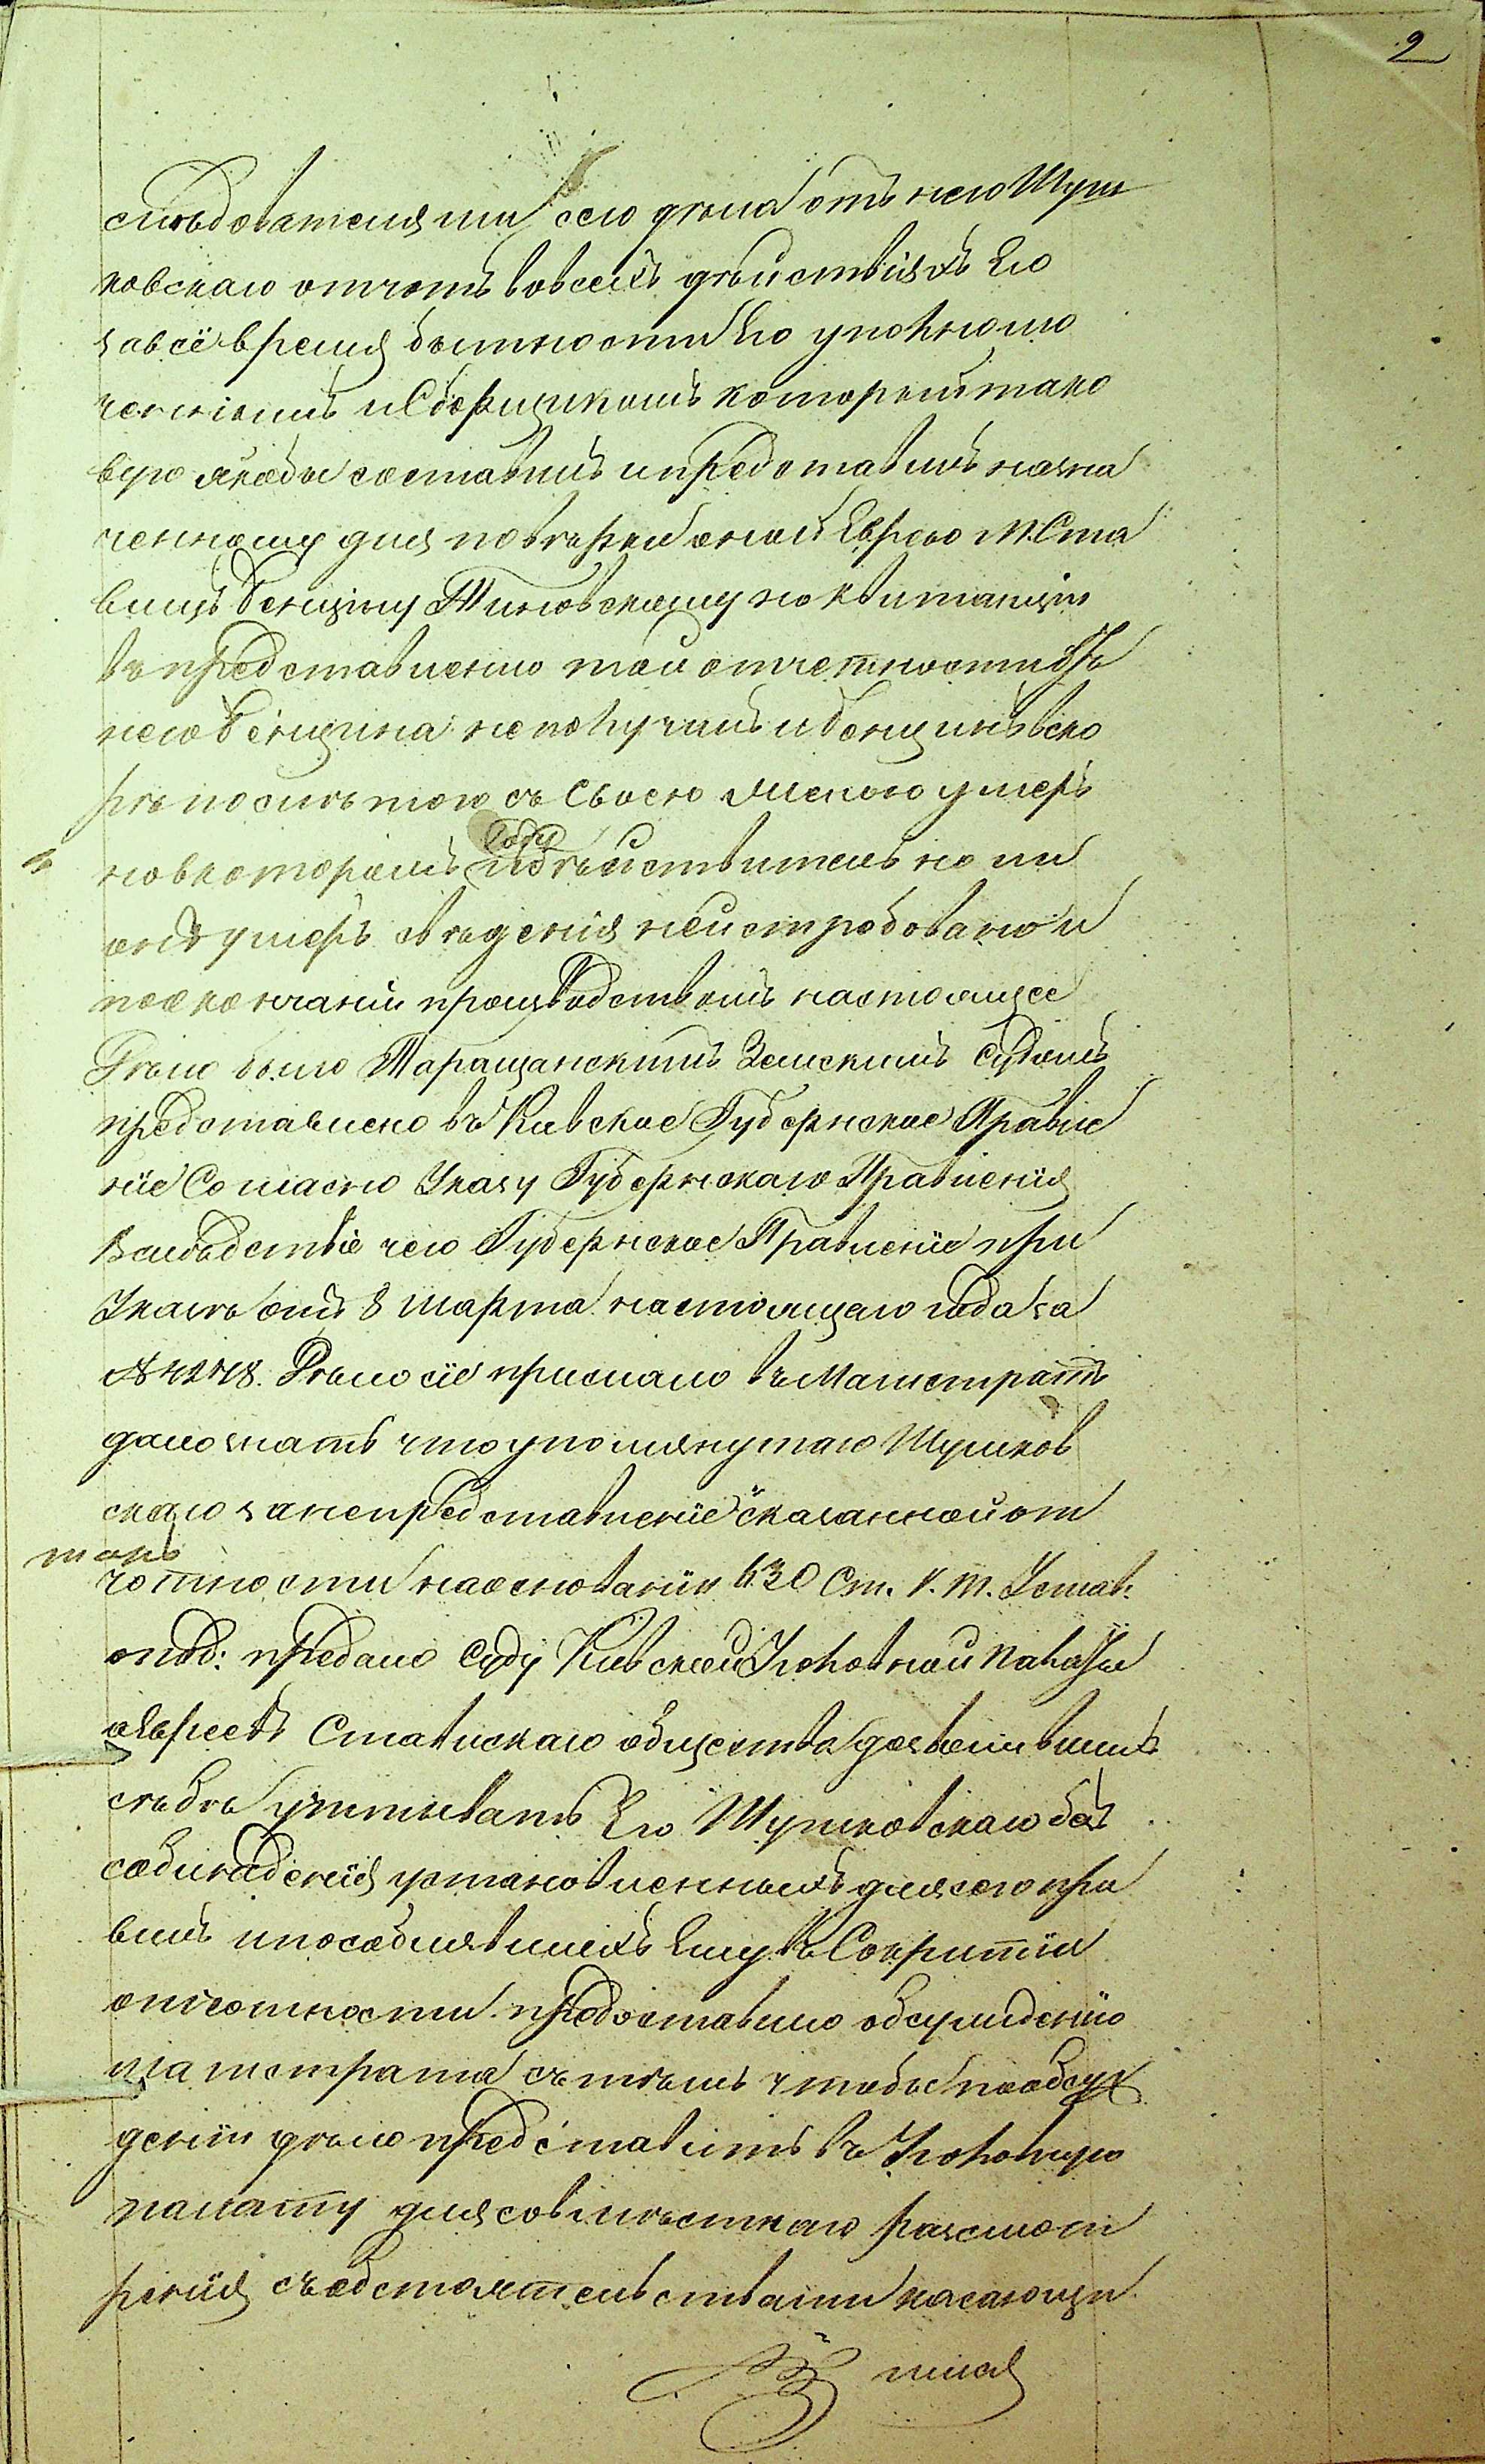 2
слѣдователями сего дѣла отъ него Шуш
ковскаго отчетъ во всехъ дѣйствіяхъ Его
за всё время бытности Его уполномо
ченнымъ и Сборщикомъ который тако
вую якобы составилъ и представилъ назна
ченному для поверки оной Еврею М. Ста
вищъ Бенціну Тиновскому но квитанціи
въ представленію той отчетности отъ
него Бенціна не получалъ и Бенцинъ вско
рѣ после того съ своею женою умеръ
но въ которомъ Году и действительно ли
онъ умеръ сведенія не истребовано и
по окончаніи производствомъ настоящее
Дѣло было Таращанскимъ Земскимъ Судомъ
представлено въ Кіевское Губернское Правле
ніе Согласно Указу Губернскаго Правленія
Вследствіе чего Губернское Правленіе при
Указѣ отъ 8 Марта настоящаго года за
№ 4278. Дѣло сіе прислало въ Магистратъ
дало знать что упомянутаго Шушков
скаго за непредставленіе сказанной от
четности на основаніи 430 Ст. V. т. Устав.
опод: предало Суду Кіевской Уголовной Палаты
а Евреевъ Ставискаго общества дозволившихъ
себѣ учитывать Его Шушковскаго безъ
соблюденія установленныхъ для сего пра
вилъ и пособлявшихъ Ему въ Сокрытіи
отчетности предоставило обсужденію
магистрата съ темъ чтобы по обсуж
деніи дѣло представить въ Уголовную
палату для совместнаго разсмот
ренія съ обстоятельствами касающи
мися